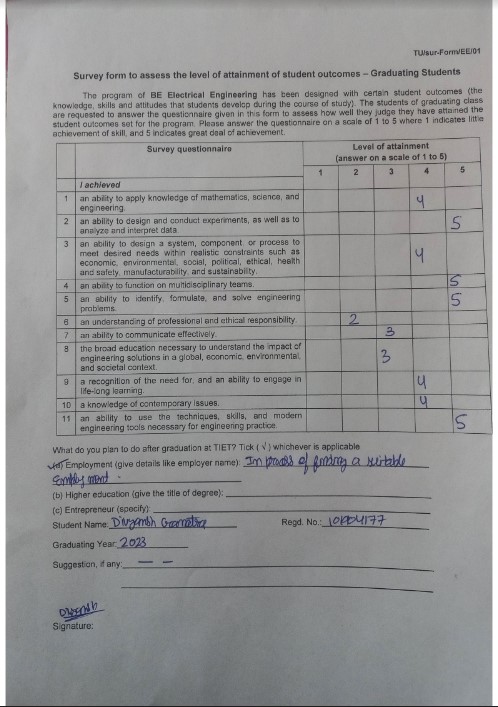 TU/sur-FormVEE/01
Survey form to assess the level of attainment of student outcomes – Graduating Students
The program of BE Electrical Engineering has been designed with certain student outcomes (the
knowledge, skills and attitudes that students develop during the course of study). The students of graduating class
are requested to answer the questionnaire given in this form to assess how well they judge they have attained the
student outcomes set for the program. Please answer the questionnaire on a scale of 1 to 5 where 1 indicates little
achievement of skill, and 5 indicates great deal of achievement.
Survey questionnaire
Level of attainment
(answer on a scale of 1 to 5)
1 2 3 4 5
I achieved
1 an ability to apply knowledge of mathematics, science, and
engineering. 4
2 an ability to design and conduct experiments, as well as to
analyze and interpret data. 5
3 an ability to design a system, component, or process to
meet desired needs within realistic constraints such as
economic, environmental, social, political, ethical, health
and safety, manufacturability, and sustainability. 4
4 an ability to function on multidisciplinary teams. 5
5 an ability to identify, formulate, and solve engineering
problems. 5
6 an understanding of professional and ethical responsibility. 2
7 an ability to communicate effectively. 3
8 the broad education necessary to understand the impact of
engineering solutions in a global, economic, environmental,
and societal context. 3
9 a recognition of the need for, and an ability to engage in
life-long learning. 4
10 a knowledge of contemporary issues. 4
11 an ability to use the techniques, skills, and modern
engineering tools necessary for engineering practice. 5
What do you plan to do after graduation at TIET? Tick (√) whichever is applicable
Employment (give details like employer name): In process of finding a suitable
Employment.
(b) Higher education (give the title of degree):
(c) Entrepreneur (specify):
Student Name: Regd. No.:
Graduating Year: 2023
Suggestion, if any: — —
Signature: